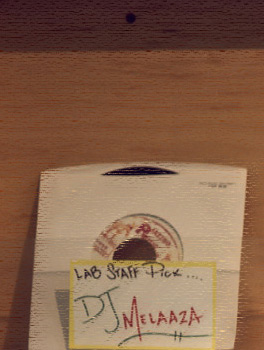 LAB STAFF PICK....
DJ
MELAAZA